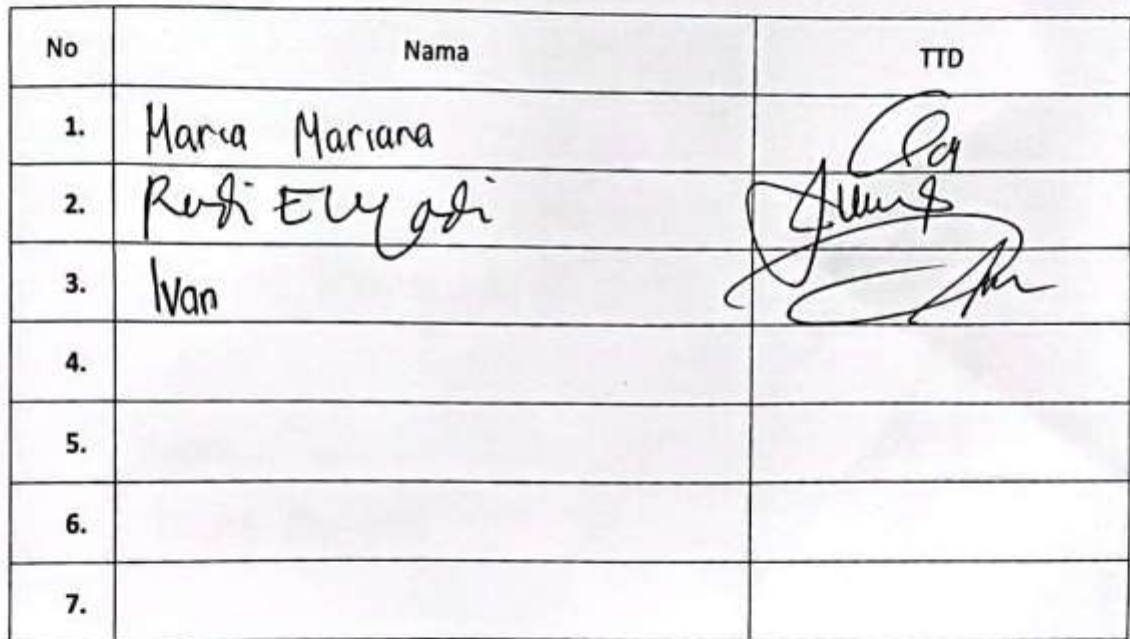 No Nama TTD
1. Maria Mariana
2. Rudi Elyadi
3. Ivan
4.
5.
6.
7.